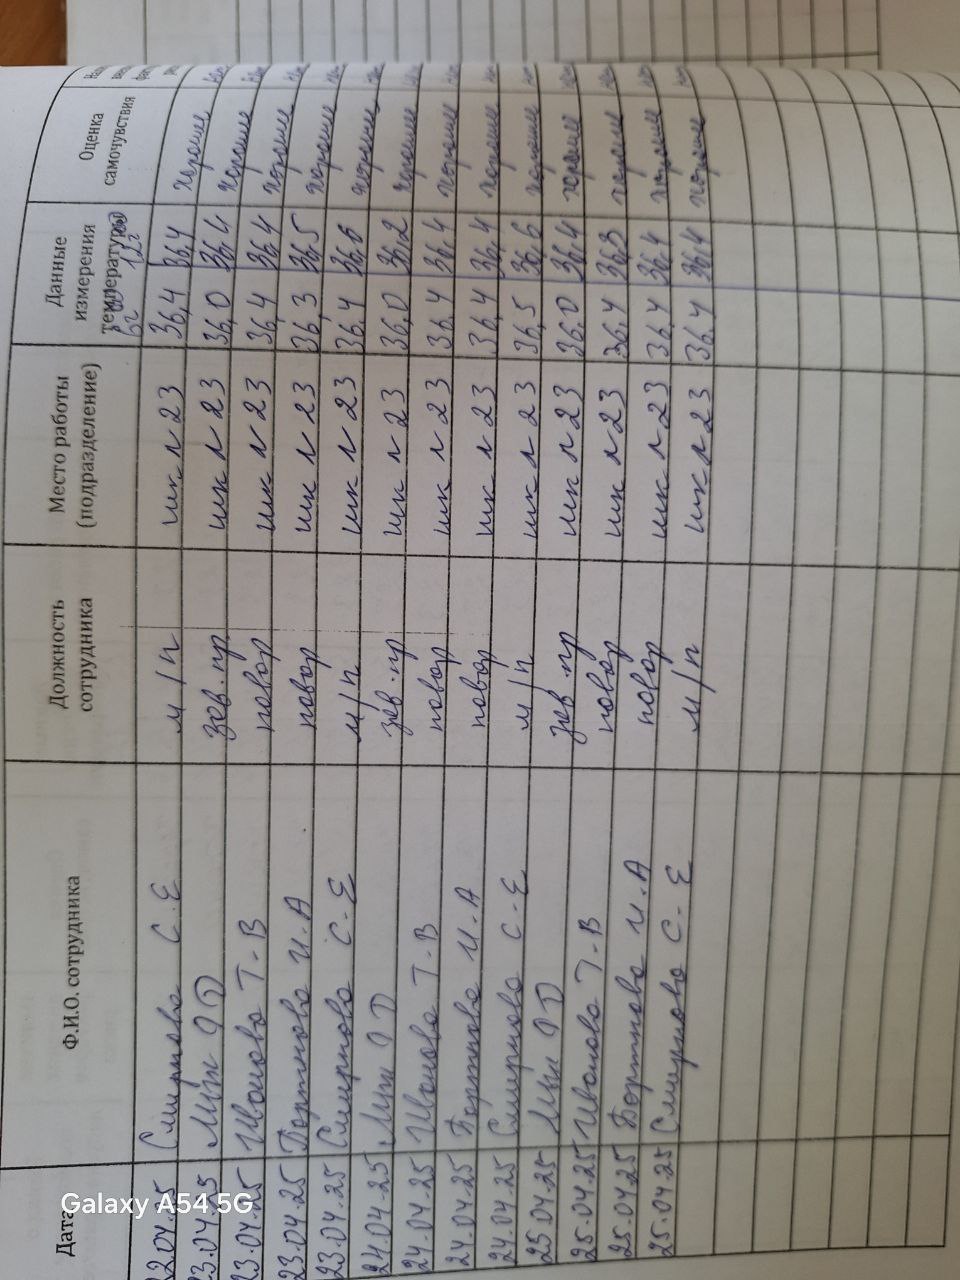 Дата Ф.И.О. сотрудника Должность сотрудника Место работы (подразделение) Данные измерения температуры Оценка самочувствия
22.04.25 Смирнова С.Е м/п шк №23 36,4 36,4 хорошее
23.04.25 зав.пр шк №23 36,0 36,4 хорошее
23.04.25 Иванова Т.В повар шк №23 36,4 36,4 хорошее
23.04.25 Портнова И.А повар шк №23 36,3 36,5 хорошее
23.04.25 Смирнова С.Е м/п шк №23 36,4 36,6 хорошее
24.04.25 зав.пр шк №23 36,0 36,2 хорошее
24.04.25 Иванова Т.В повар шк №23 36,4 36,4 хорошее
24.04.25 Портнова И.А повар шк №23 36,4 36,4 хорошее
24.04.25 Смирнова С.Е м/п шк №23 36,5 36,6 хорошее
25.04.25 зав.пр шк №23 36,0 36,4 хорошее
25.04.25 Иванова Т.В повар шк №23 36,4 36,3 хорошее
25.04.25 Портнова И.А повар шк №23 36,4 36,4 хорошее
25.04.25 Смирнова С.Е м/п шк №23 36,4 36,4 хорошее
Galaxy A54 5G